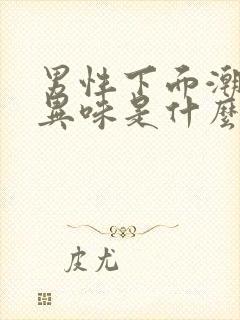 男性下而潮
異味是什麼
皮尤